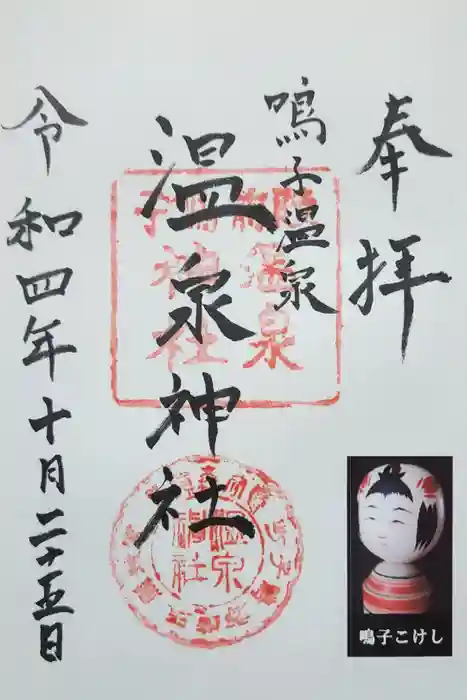 奉拝
鳴子温泉
温泉神社
令和四年十月二十五日
鳴子こけし